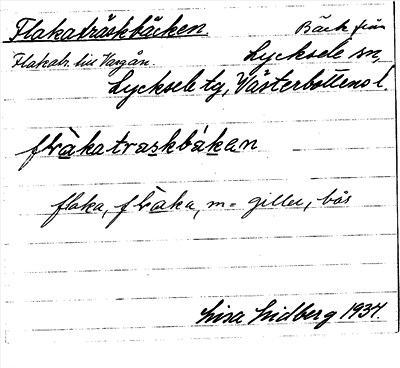 Flakaträskbäcken Bäck från
Flakatr. till Vargån. Lycksele sn,
Lycksele tg, Västerbottens l
flàkatraskbákan
flaka, flàka, m = giller, bås
Lisa Lidberg 1934.